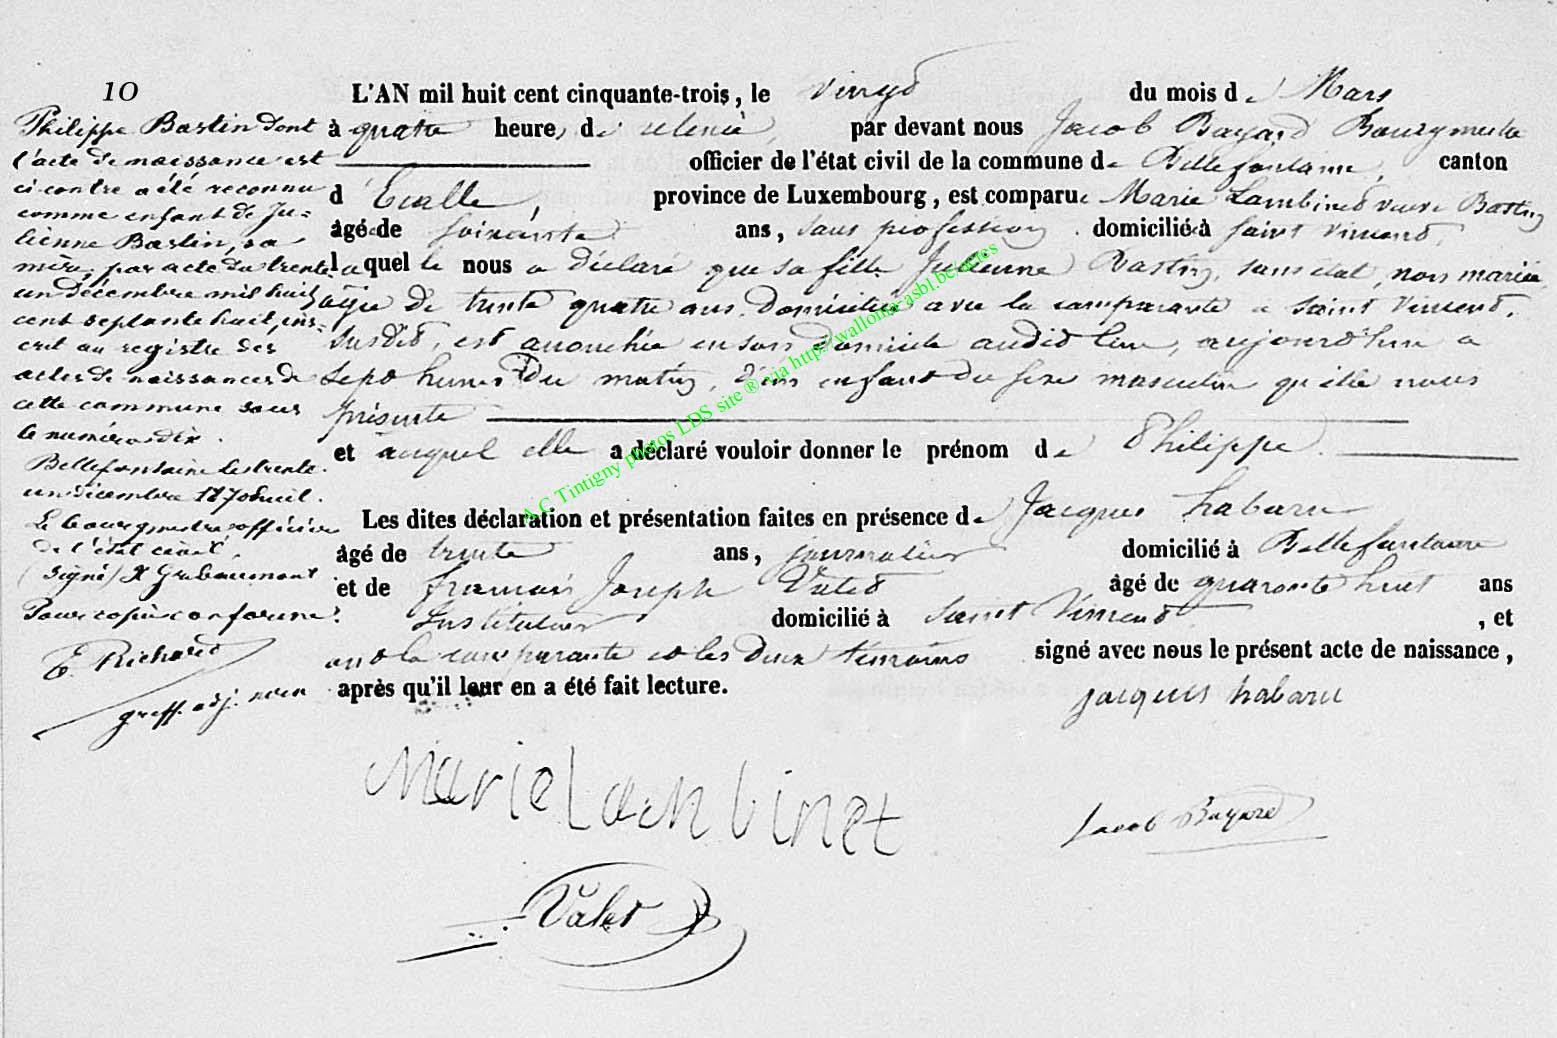 10
Philippe Bastin dont
l'acte de naissance est
ci contre a été reconnu
comme enfant de Ju-
lienne Bastin, sa
mère, par acte du trente
un décembre mil huit
cent septante huit, ins-
crit au registre des
actes de naissances de
cette commune sous
le numéro dix.
Bellefontaine le trente.
un décembre 187
Le bourgmestre officier
de l'état civil,
(signé)
Pour copie conforme:
E. Richard
greff. adj.
L'AN mil huit cent cinquante-trois, le vingt du mois de Mars
à quatre heures de relevée, par devant nous Jacob Bayard Bourgmestre
officier de l'état civil de la commune de Bellefontaine, canton
d'Etalle, province de Luxembourg, est comparue Marie Lambinet veuve Bastin
âgée de soixante ans, sans profession domiciliée à Saint Vincent,
laquelle nous a déclaré que sa fille Julienne Bastin, sans état, non mariée,
âgée de trente quatre ans, domiciliée avec la comparante à Saint Vincent,
susdit, est accouchée en son domicile audit lieu, aujourd'hui a
sept heures du matin, d'un enfant du sexe masculin qu'elle nous
présente
et auquel elle a déclaré vouloir donner le prénom de Philippe.
Les dites déclaration et présentation faites en présence de Jacques habaru
âgé de trente ans, journalier domicilié à Bellefontaine
et de françois Joseph Valet âgé de quarante huit ans
Instituteur domicilié à Saint Vincent, et
ont la comparante et les deux témoins signé avec nous le présent acte de naissance,
après qu'il leur en a été fait lecture.
jacques habaru
Marie Lambinet
Jacob Bayard
Valet
A C Tintigny photos LDS site ® via http://wallonia-asbl.be/actes